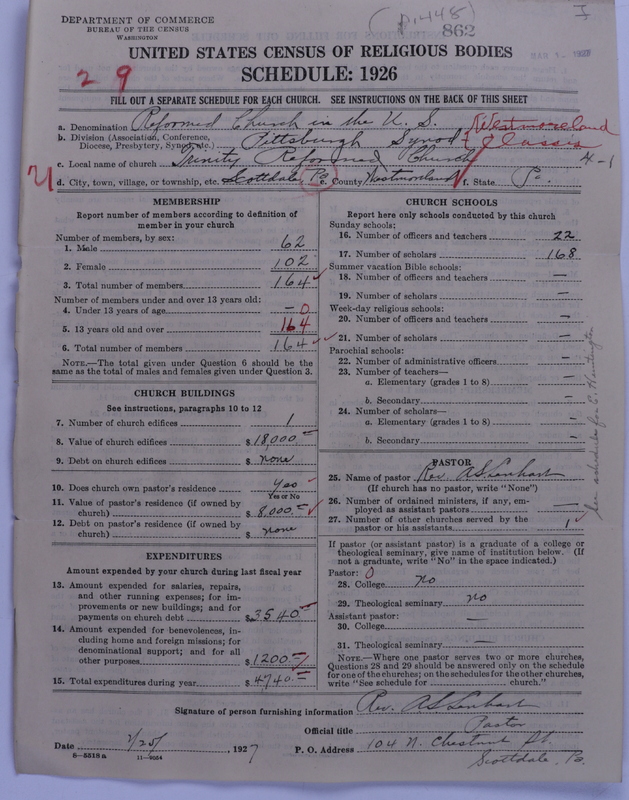 DEPARTMENT OF COMMERCE
BUREAU OF THE CENSUS
WASHINGTON
(p.448)
862
I
UNITED STATES CENSUS OF RELIGIOUS BODIES
SCHEDULE: 1926
29
FILL OUT A SEPARATE SCHEDULE FOR EACH CHURCH. SEE INSTRUCTIONS ON THE BACK OF THIS SHEET
a. Denomination Reformed Church in the U. S.
b. Division (Association, Conference, Diocese, Presbytery, Synod, etc.) Pittsburgh Synod Westmoreland Classis
c. Local name of church Trinity Reformed Church 4-1
d. City, town, village, or township, etc. Scottdale, Pa. e. County Westmoreland f. State Pa.
MEMBERSHIP
Report number of members according to definition of
member in your church
Number of members, by sex:
1. Male 62
2. Female 102
3. Total number of members 164
Number of members under and over 13 years old:
4. Under 13 years of age — 0
5. 13 years old and over 164
6. Total number of members 164
NOTE.—The total given under Question 6 should be
same as the total of males and females given under Question 3.
CHURCH BUILDINGS
See instructions, paragraphs 10 to 12
7. Number of church edifices 1
8. Value of church edifices $ 18,000.—
9. Debt on church edifices $ none
10. Does church own pastor's residence yes
Yes or No
11. Value of pastor's residence (if owned by
church) $ 8,000.—
12. Debt on pastor's residence (if owned by
church) $ none
EXPENDITURES
Amount expended by your church during last fiscal year
13. Amount expended for salaries, repairs,
and other running expenses; for im-
provements or new buildings; and for
payments on church debt $ 3540—
14. Amount expended for benevolences, in-
cluding home and foreign missions; for
denominational support; and for all
other purposes $ 1200.—
15. Total expenditures during year $ 4740.—
CHURCH SCHOOLS
Report here only schools conducted by this church
Sunday schools:
16. Number of officers and teachers 22
17. Number of scholars 168
Summer vacation Bible schools:
18. Number of officers and teachers —
19. Number of scholars —
Week-day religious schools:
20. Number of officers and teachers —
21. Number of scholars —
Parochial schools:
22. Number of administrative officers —
23. Number of teachers—
a. Elementary (grades 1 to 8) —
b. Secondary —
24. Number of scholars—
a. Elementary (grades 1 to 8) —
b. Secondary —
PASTOR
25. Name of pastor Rev. A S Lenhart
(If church has no pastor, write "None")
26. Number of ordained ministers, if any, em-
ployed as assistant pastors —
27. Number of other churches served by the
pastor or his assistants 1
If pastor (or assistant pastor) is a graduate of a college or
theological seminary, give name of institution below. (If
not a graduate, write "No" in the space indicated.)
Pastor: 0
28. College no
29. Theological seminary no
Assistant pastor:
30. College —
31. Theological seminary —
NOTE.—Where one pastor serves two or more churches,
Questions 28 and 29 should be answered only on the schedule
for one of the churches; on the schedules for the other churches,
write "See schedule for church."
Signature of person furnishing information Rev. A S Lenhart
Official title Pastor
Date 2/25/, 1927 P. O. Address 104 N. Chestnut St.
Scottdale, Pa.
8—5518a 11—9054
See schedule for